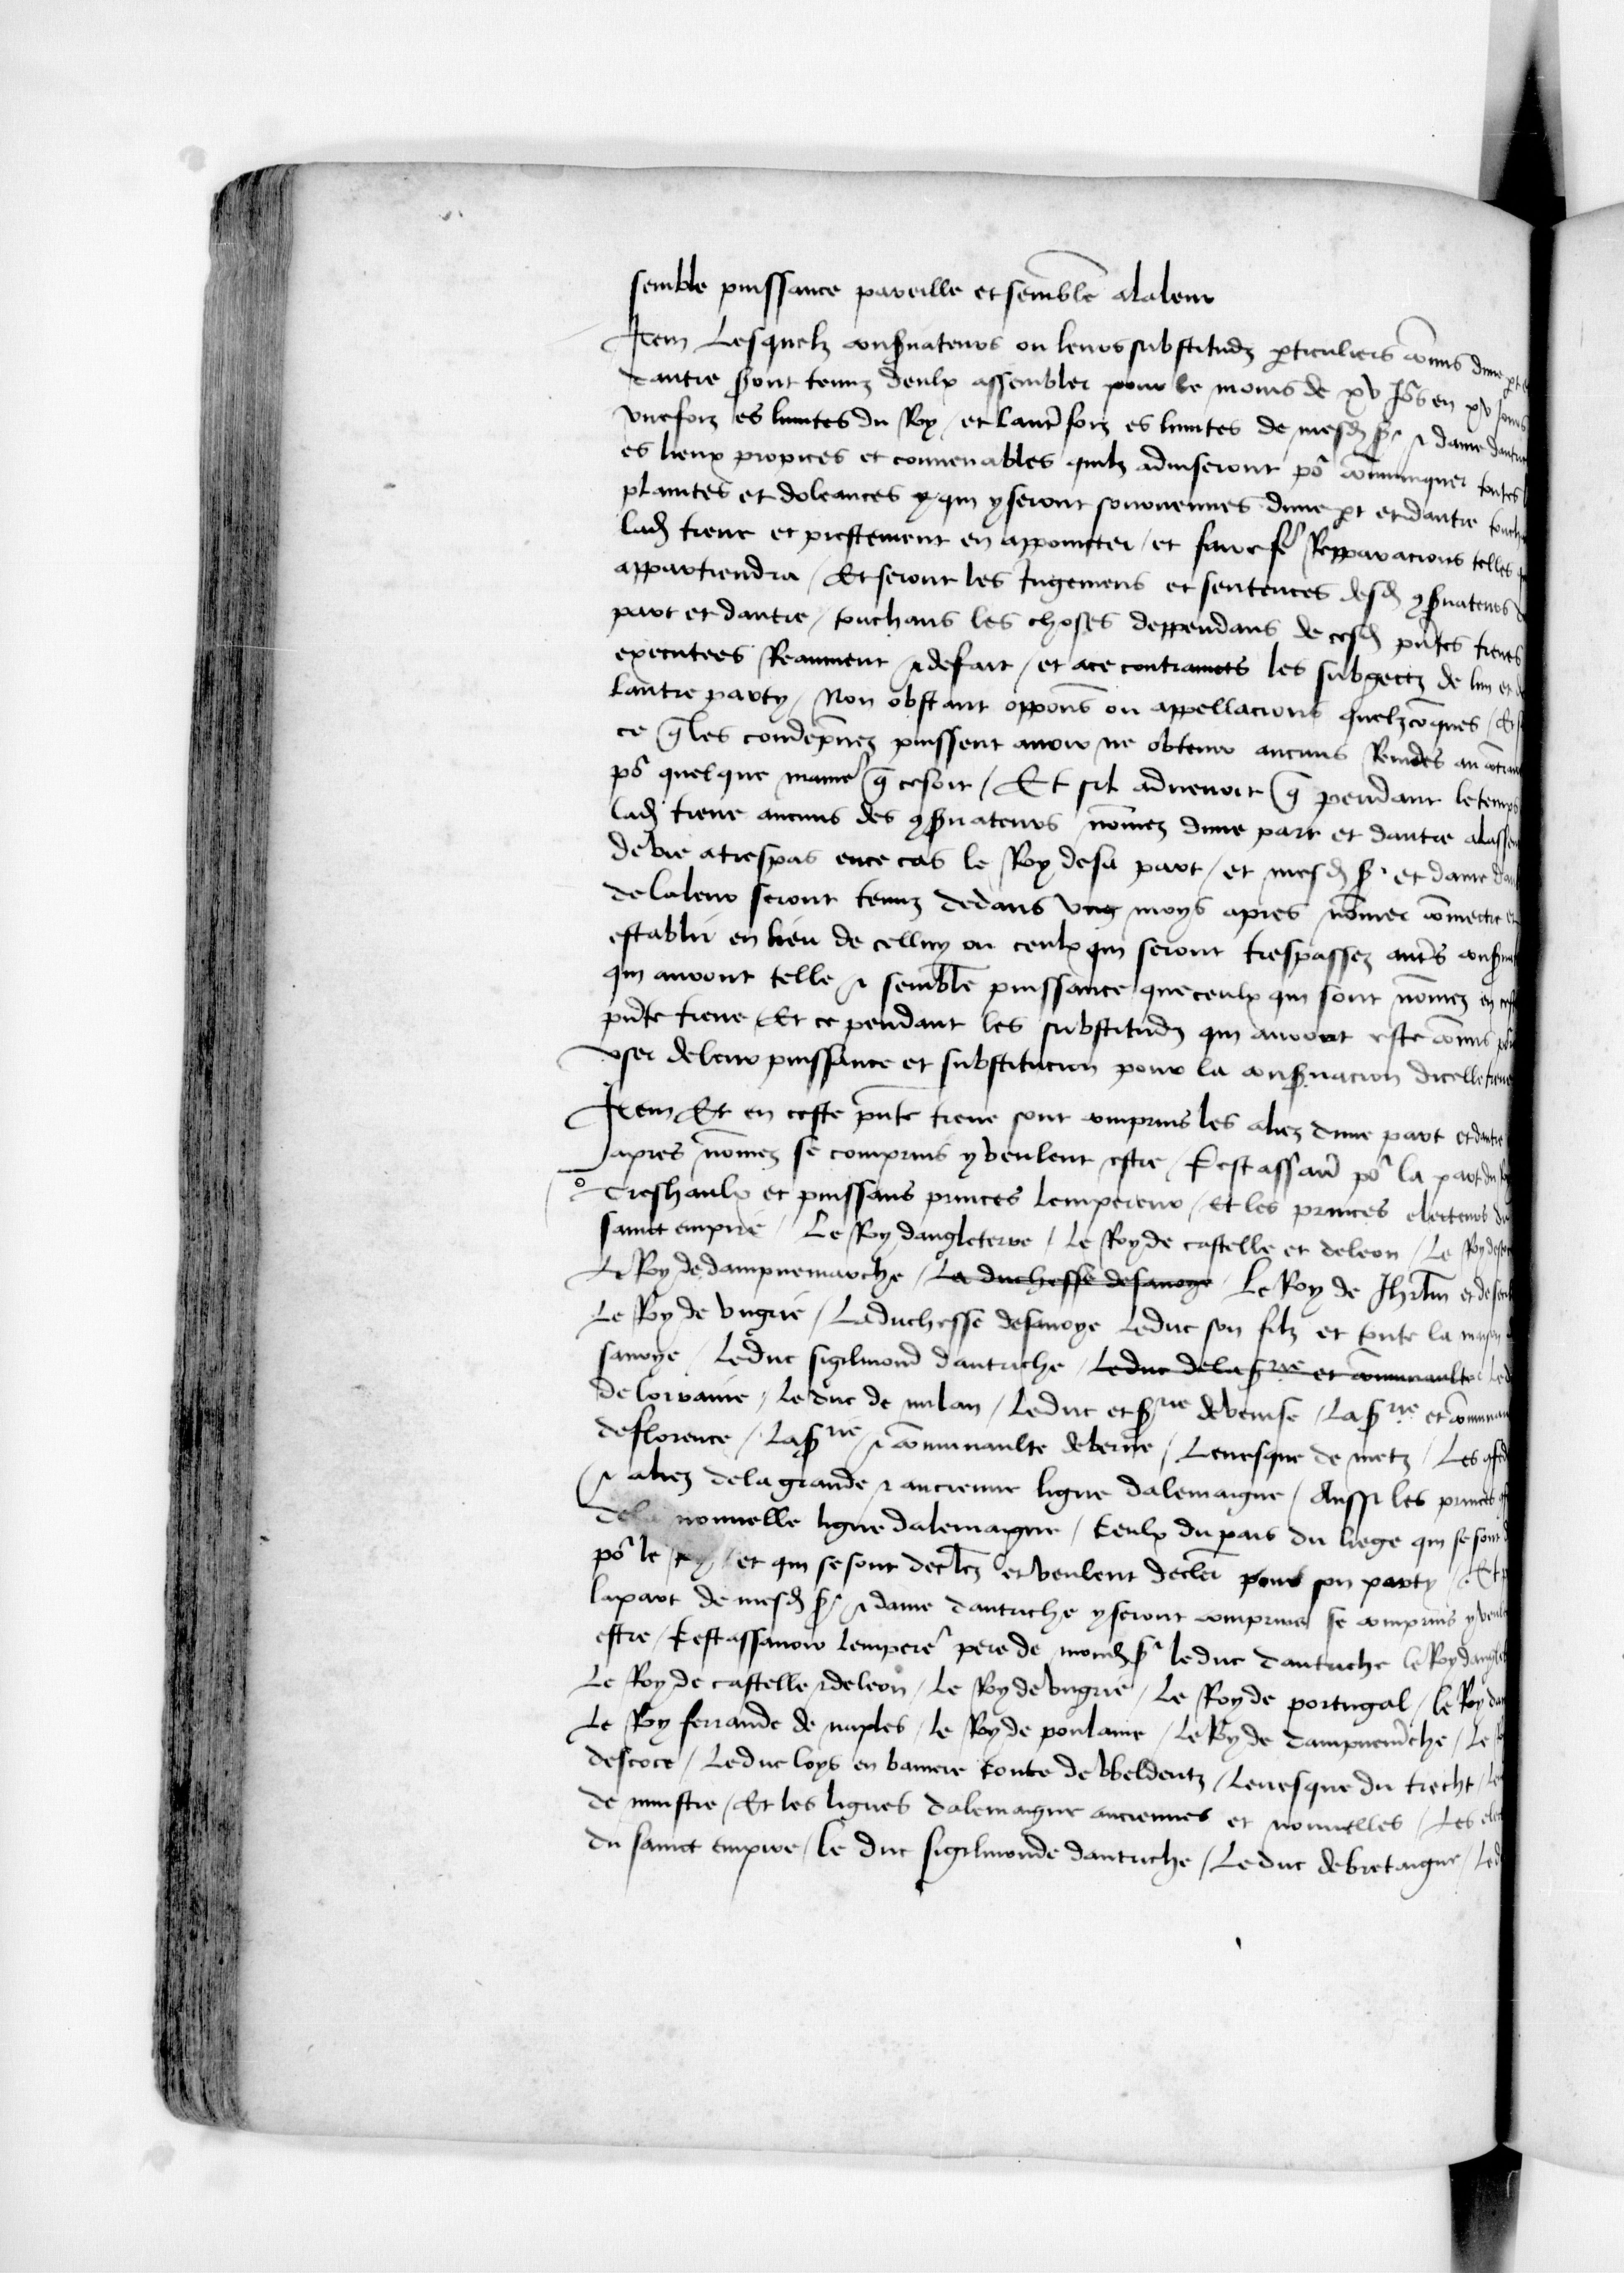 semble puissance pareille et semble alaleur
Item Lesquelz conservateurs ou leurs substitudz particuliers commis dune part
dautre seront tenuz deulx assembler pour le moins de xv Jours en xv Jours
vne foiz es limites du Roy / et lautre foiz es limites de mesd. sr et dame dautri
es lieux propices et convenables quilz adviseront pour communiquer toutes
plaintes et doleances qui y seront sourvenues dune part et dautre touch
lad. treve et prestement en appoincter / et faire fere Repparacions telles
appartiendra / Et seront les Jugemens et sentences desd. conservateurs
part et dautre / touchans les choses deppendans de cesd. presentes treves
executees Reaument et defait / et ace contraincts les subgectz de lun et
lautre party / Non obstant opposicions ou appellacions quelzconques / Et
ce que les condempnez puissent avoir ne obtenir aucuns Remedes au contra
pour quelque maniere que cesoit / Et sil advenoit que pendant letemps
lad. treve aucuns des conservateurs nommez dune part et dautre alass
de vie atrespas ence cas le Roy desa part / et mesd. sr et dame dau
delaleur seront tenuz dedans ung moys apres nommer commectre et
establir en lieu de celluy ou ceulx qui seront trespassez autres conserva
qui auront telle et semblable puissance queceulx qui sont nommez en cest
presente treve / Et ce pendant les substitudz qui auront este commis
user deleur puissance et substitucion pour la conservacion dicelle treve
Item Et en ceste presente treve sont comprins les aliez dune part et dautre
apres nommez se comprins y veulent estre / Cest assavoir pour la part du Roy
Treshaulx et puissans princes lempereur / Et les princes electeurs du
sainct empire / Le Roy dangleterre / Le Roy de castelle et deleon / Le Roy desc
Le Roy dedampnemarche / La duchesse desavoye / Le Roy de Jhrlm et de
Le Roy de ungrie / Laduchesse desavoye Leduc son filz et toute la maison
savoye / Leduc sigilmond dautriche / Leduc dela srie et communaulte Led
de lorraine / Le duc de milan / Leduc et srie devenise / La srie et commun
deflorence / La srie et communaulte deberne / Levesque de metz / Les
et aliez dela grande et ancienne ligue dalemaigne / Aussi les princes
dela nouvelle ligue dalemaigne / Ceulx du pais du liege qui se sont
pour le Roy / et qui se sont declerez et veulent declerer pour son party / Et
lapart de mesd. sr et dame dautriche y seront comprins se comprins y veule
estre / Cest assavoir lempereur pere de mond. sr le duc dautriche le Roy dangle
Le Roy de castelle et deleon / Le Roy deungrie / Le Roy de portugal / le Roy
Le Roy ferrande de naples / le Roy de poulaine / Le Roy de dampnemarche / Le
descoce / Leduc loys en baviere conte de Weldentz / Levesque du trecht /
de munstre / Et les ligues dalemaigne anciennes et nouvelles / Les elec
du sainct empire / Le duc sigilmonde dautriche / Le duc debretaigne / Led